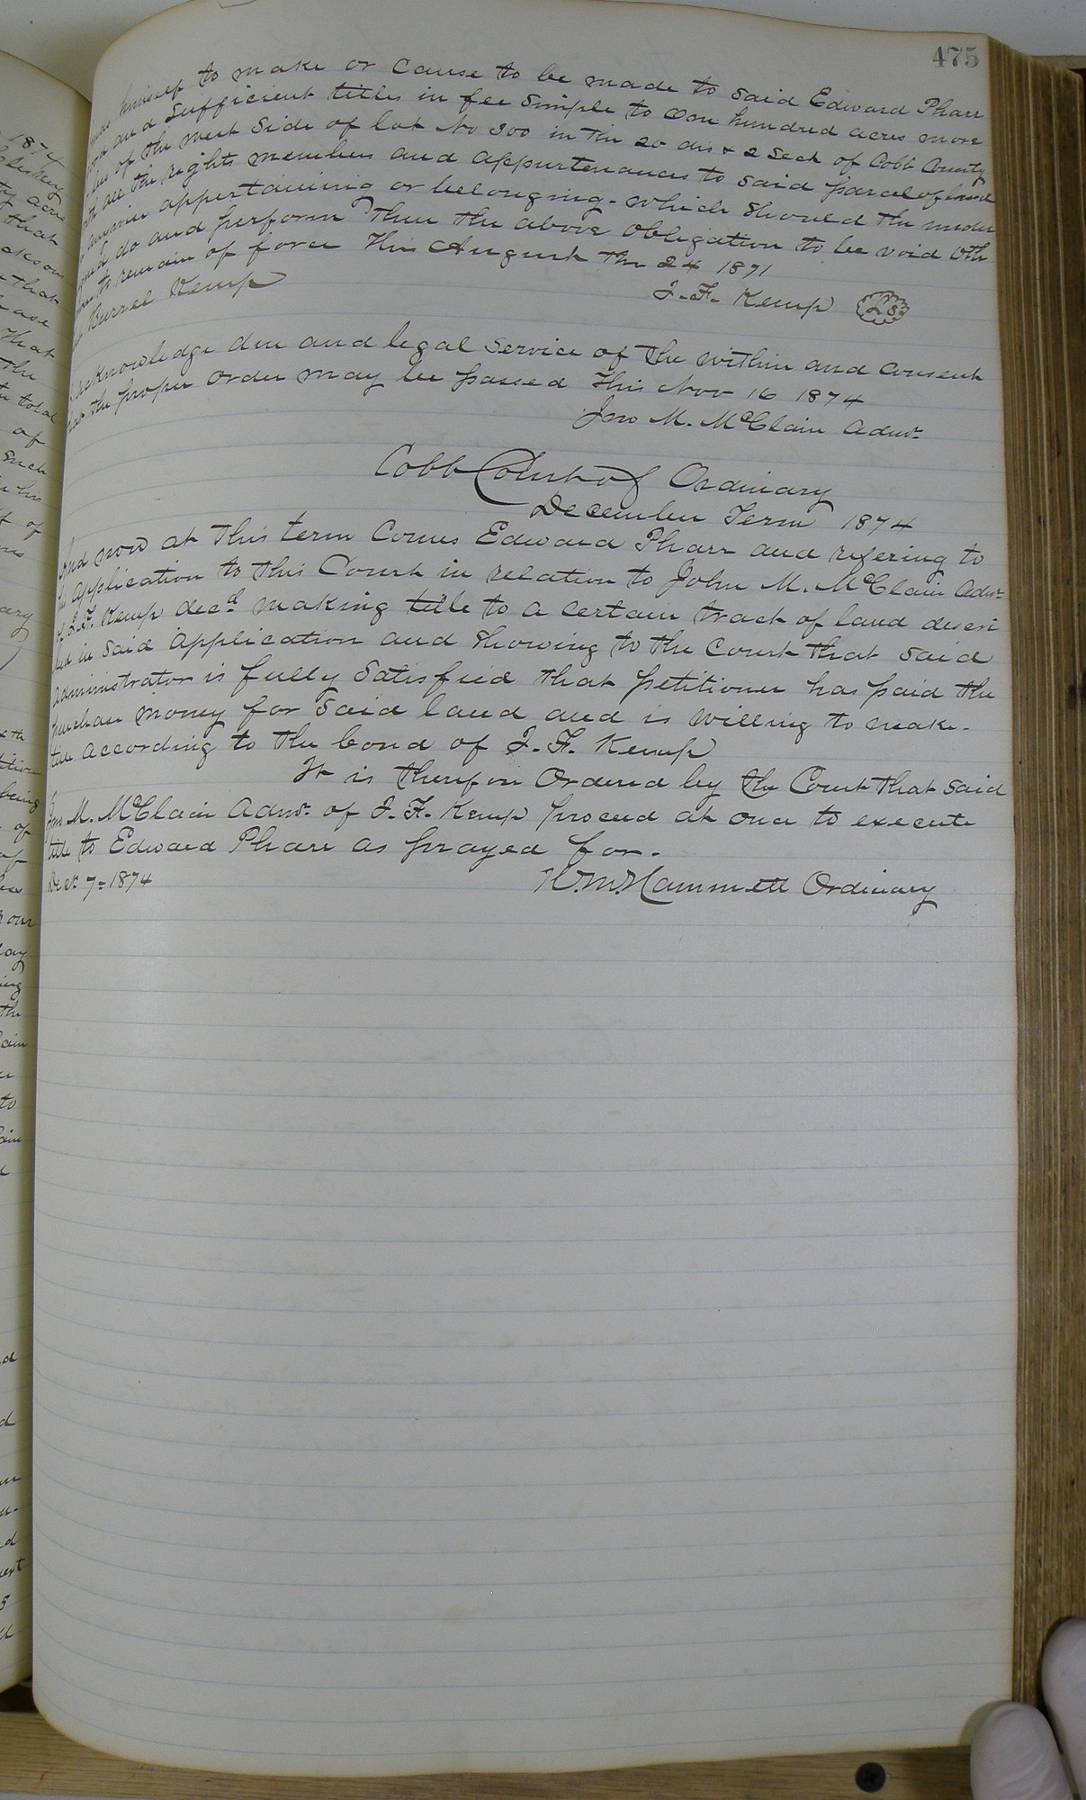 475
himself to make or cause to be made to said Edward Pharr
good and Sufficient titles in fee simple to One hundred acres more
or less of the West Side of lot No 300 in the 20 dis & 2 Sect of Cobb County
with all the rights members and appurtenances to said parcel of land
in anywise appertaining or belonging - which should the under
signed do and perform then the above obligation to be void Oth
to remain of force This August the 24 1871
Burrel Kemp
J. F. Kemp LS
Acknowledge due and legal service of the within and consent
that the proper order may be passed This Nov 16 1874
Jno M. McClain Admr.
Cobb Court of Ordinary
December Term 1874
And now at this term Comes Edward Pharr and refering to
his application to this Court in relation to John M. McClain Admr
of J. F. Kemp decd making title to a certain tract of land descri
bed in said application and showing to the Court that said
administrator is fully Satisfied that petitioner has paid the
purchase money for said land and is willing to make
title according to the bond of J. F. Kemp
It is therefore Ordered by the Court that said
Jno M. McClain Admr. of J. F. Kemp proceed at once to execute
title to Edward Pharr as prayed for.
Dec 7 - 1874
H. M. Hammett Ordinary
1874
that
that
ease
that
the
total
of
such
in his
of
being
of
of
our
ing
the
to